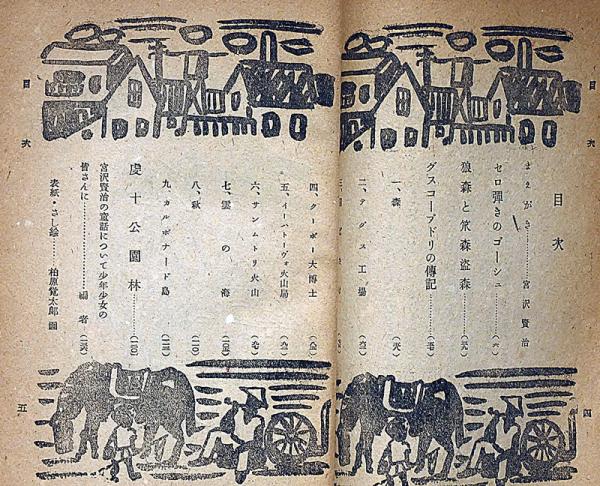 目次
四
目次
まえがき……宮沢賢治
セロ弾きのゴーシュ……(六)
狼森と笊森盗森……
グスコーブドリの傳記……
一、森
二、テグス工場
四、クーボー大博士
五、イーハトーヴォ火山局
六、サンムトリ火山
七、雲の海
八、秋
九、カルボナード島
虔十公園林……
宮沢賢治の童話について少年少女の
皆さんに……編者
表紙・さし絵……柏原覚太郎画
目次
五